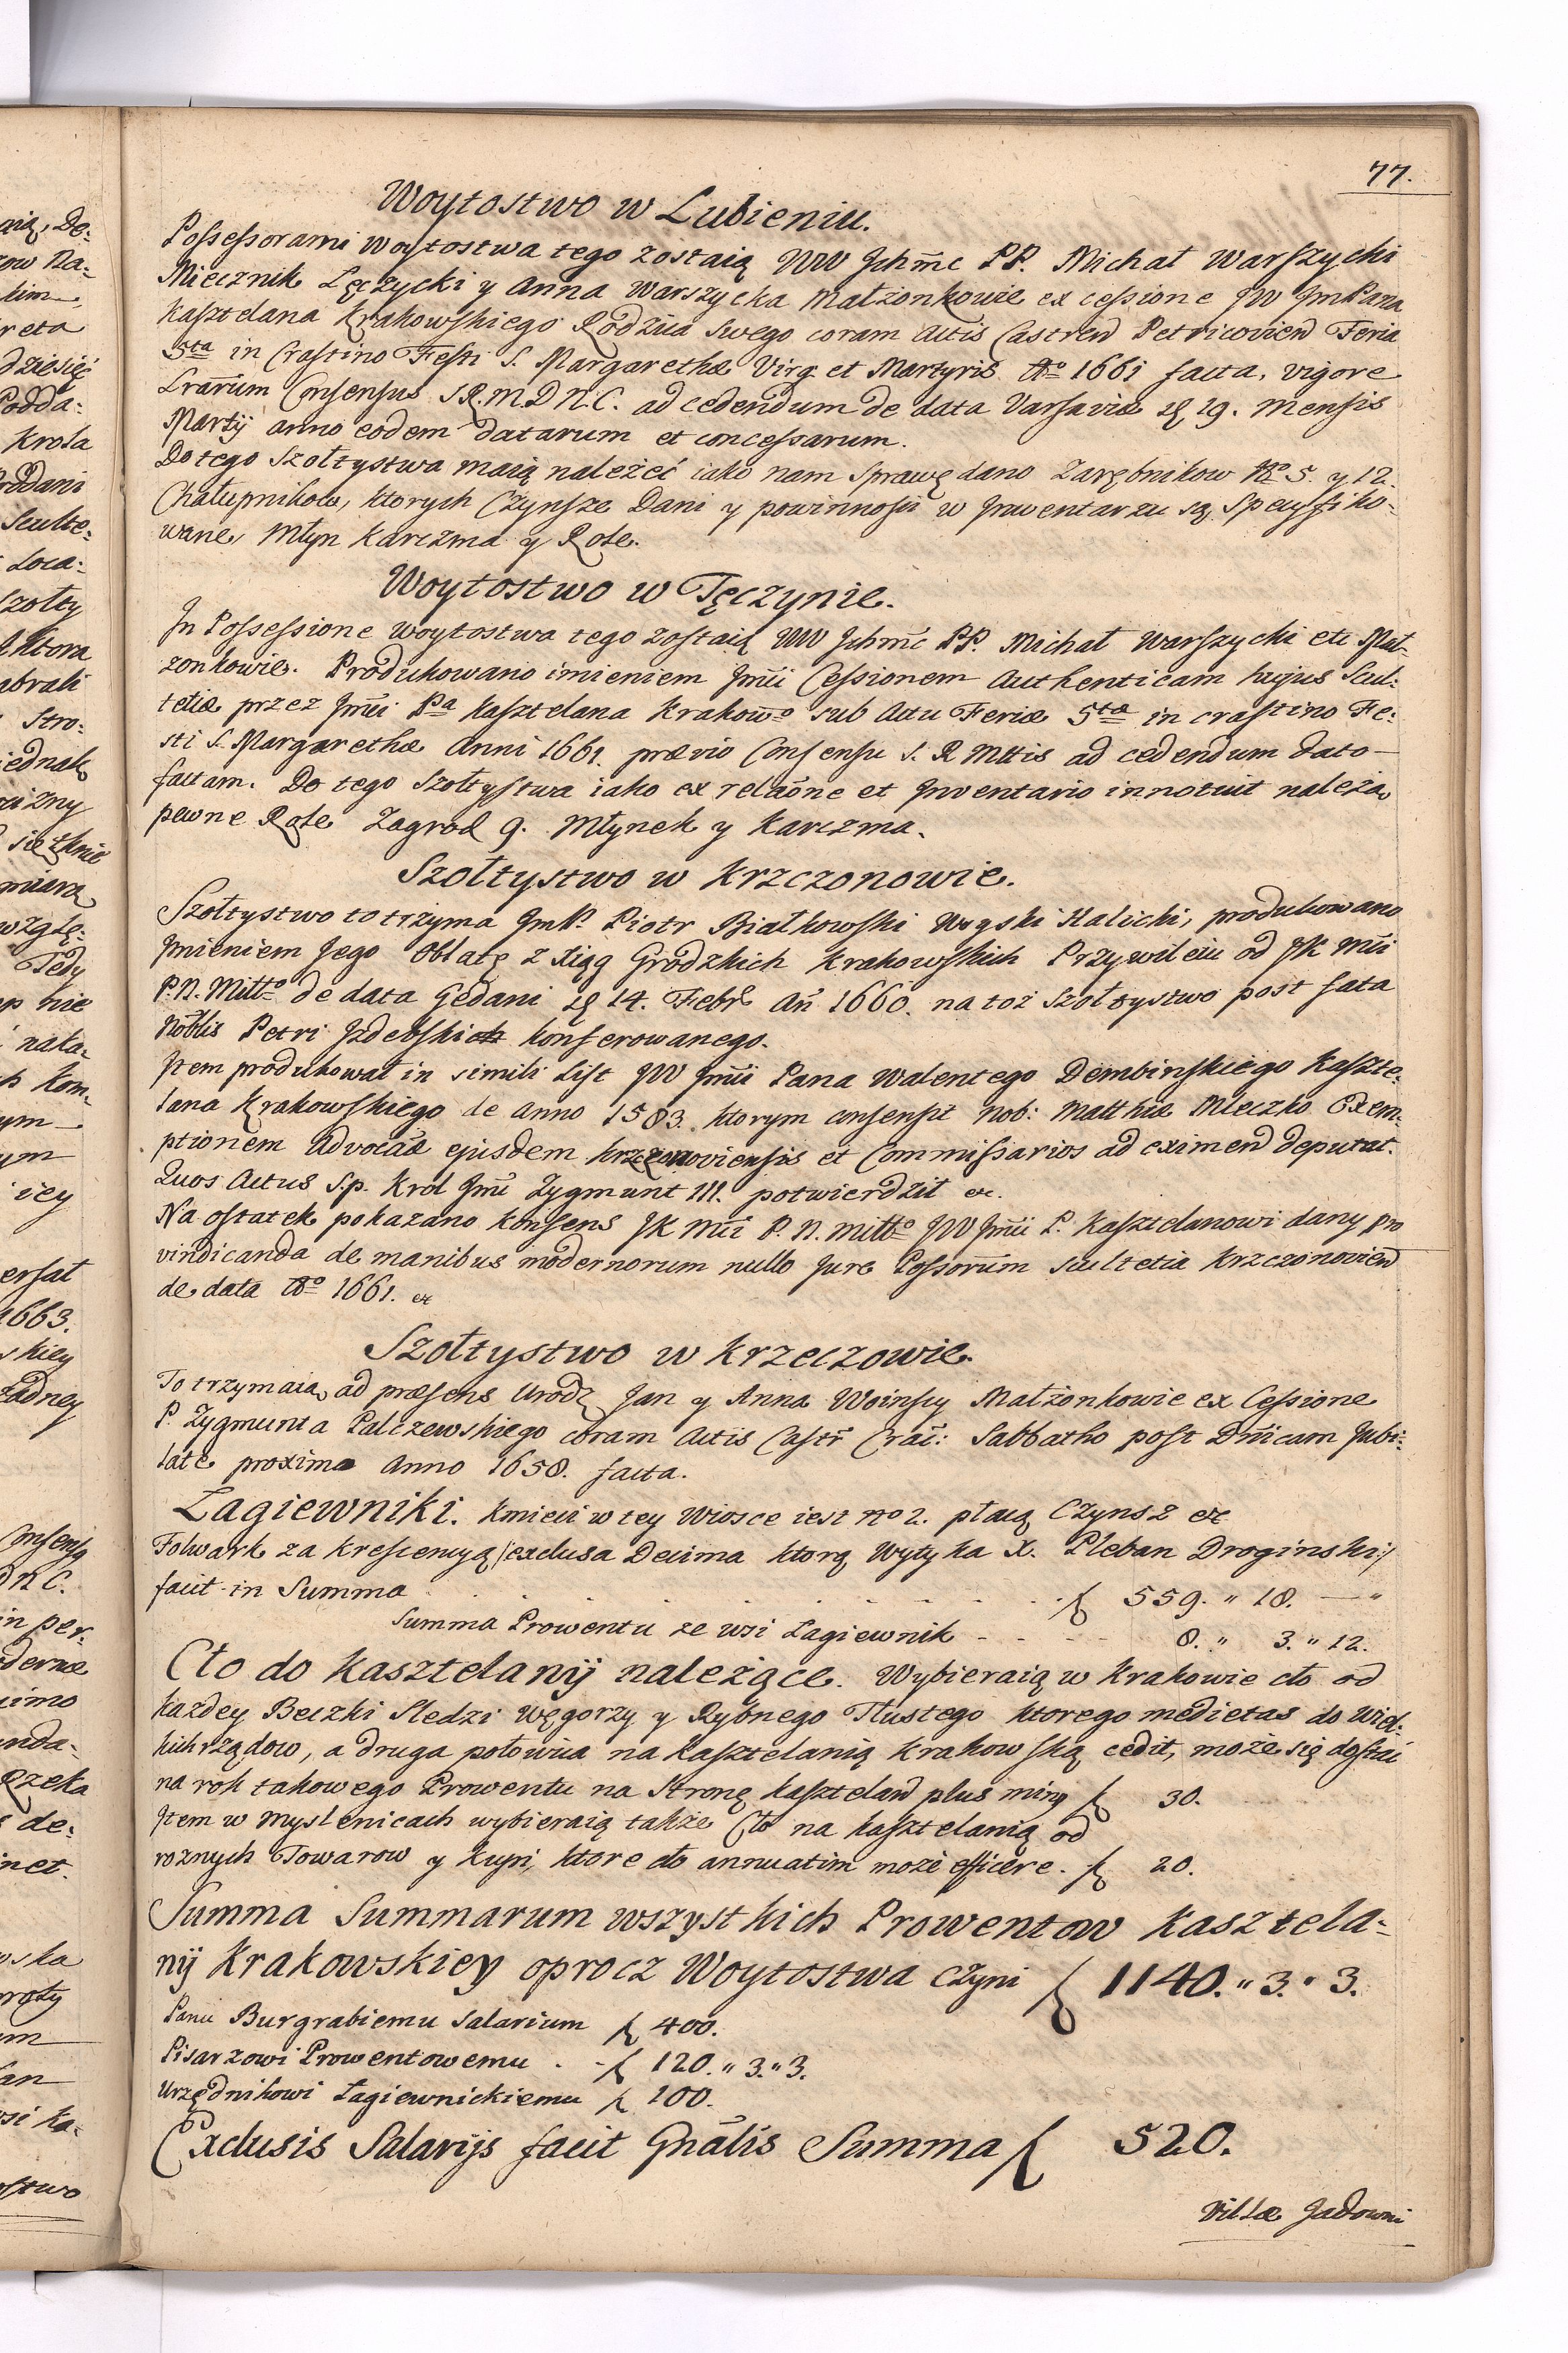 77.
Woytostwo w Lubieniu.
Possessorami Woytostwa tego zostaią WW Jchm̃c PP. Michał Warszycki
Miecznik Lęczycki y Anna Warszycka Małżonkowie ex cessione JW JmPana
Kasztelana Krakowskiego Rodzica Swego coram Actis Castren Petricovien Feria
5ta in Crastino Festi S. Margarethæ Virg et Martyris Ao 1661 facta, vigore
Lrarum Consensus S.R.M.D.N.C. ad cedendum de data Varsaviæ d 29. Mensis
Martij anno eodem datarum et concessarum.
Do tego Szołtystwa maią należeć iako nam sprawę dano Zarębnikow No 5. y 12.
Chałupnikow, ktorych Czynsze Dani y powinności w Jnwentarzu są Specyfiko-
wane, Młyn Karczma y Role.
Woytostwo w Tęczynie.
Jn Possessione Woytostwa tego zostaią WW Jchmc PP. Michał Warszycki etc Mał-
żonkowie. Produkowano imieniem Jmci Cessionem Authenticam hujus Scul-
tetiæ przez Jmci Pa Kasztelana Krakowo sub Actu Feriæ 5tæ in crastino Fe-
sti S. Margarethæ Anni 1661. prævio Consensu S. R Mttis ad cedendum dato
factam. Do tego Szołtystwa iako ex relaõne et Jnventario innotuit należą
pewne Role Zagrod 9. Młynek y Karczma.
Szołtystwo w Krzczonowie.
Szołtystwo to trzyma JmP. Piotr Białkowski Woyski Halicki, produkowano
Jmieniem Jego Oblatę z Xiąg Grodzkich Krakowskich Przywileiu od JK Mci
P.N. Mitto de data Gedani d 14. Febr An 1660. na toż Szołtystwo post fata
Nobilis Petri Jzdebski konferowanego.
Jtem produkował in simili List JW Jmci Pana Walentego Dembinskiego Kaszte-
lana Krakowskiego de Anno 1583. ktorym consensit Nob: Matthiæ Mleczko Exem-
ptionem Advocaæ ejusdem Krzczonoviensis et Commissarios ad eximen deputat.
Quos Actus S.p. Krol Jmc Zygmunt III. potwierdził etc.
Na ostatek pokazano Konsens JK Mci P. N. Mitto JW Jmci P. Kasztelanowi dany pro
vindicanda de manibus modernorum nullo Jure Possorum Scultetia Krzczonovien
de data Ao 1661. etc
Szołtystwo w Krzeczowie.
To trzymaią ad præsens Urodz Jan y Anna Woinscy Małżonkowie ex Cessione
P. Zygmunta Palczewskiego coram Actis Castr Crac: Sabbatho post Dnicam Jubi-
late proximo Anno 1658. facta.
Łagiewniki. Kmieci w tey Wiosce iest No 2. płacą Czynsz etc.
Folwark za Krescencyą /:exclusa Decima ktorą wytyka X. Pleban Droginski:/
facit in Summa . . . . . . . f 559. " 18. — "
Summa Prowentu ze wsi Łagiewnik - - - - 8. " 3. " 12.
Cło do Kasztelanij należące. Wybieraią w Krakowie cło od
każdey Beczki Sledzi Węgorzy y Rybnego Tłustego ktorego medietas do Wiel-
kich rządow, a druga połowica na Kasztelanią Krakowską cedit, może się dostać
na rok takowego Prowentu na Stronę Kasztelan plus minus f 30.
Jtem w Myslenicach wybieraią także Cło na Kasztelanią od
roznych Towarow y Kupi, ktore cło annuatim może efficere. f 20.
Summa Summarum wszystkich Prowentow Kasztela-
nij Krakowskiey oprocz Woytostwa czyni f 1140. " 3. " 3.
Panu Burgrabiemu Salarium f 400.
Pisarzowi Prowentowemu . - f 120. " 3. " 3.
Urzędnikowi Łagiewnickiemu f 100.
Exclusis Salarijs facit Gnalis Summa f 520.
Villæ Jadowni